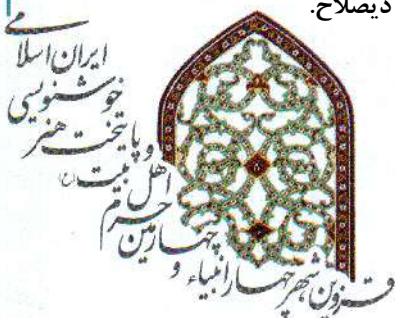 ذیصلاح.
قزوین شهر چهار انبیاء و
چهارمین
حرم
اهل بیت (ع)
و پایتخت هنر
خوشنویسی
ایران اسلامی